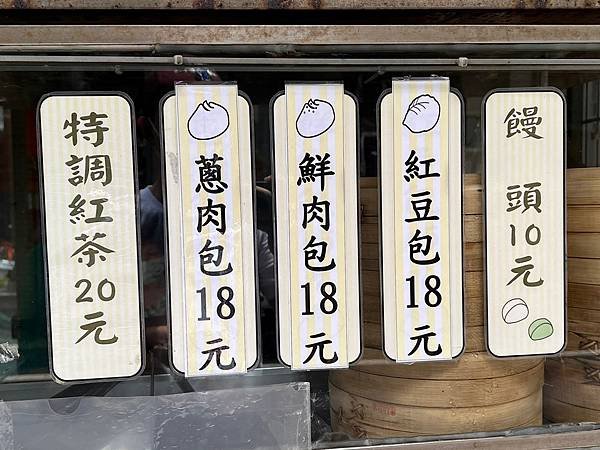 特調紅茶20元
蔥肉包18元
鮮肉包18元
紅豆包18元
饅頭10元